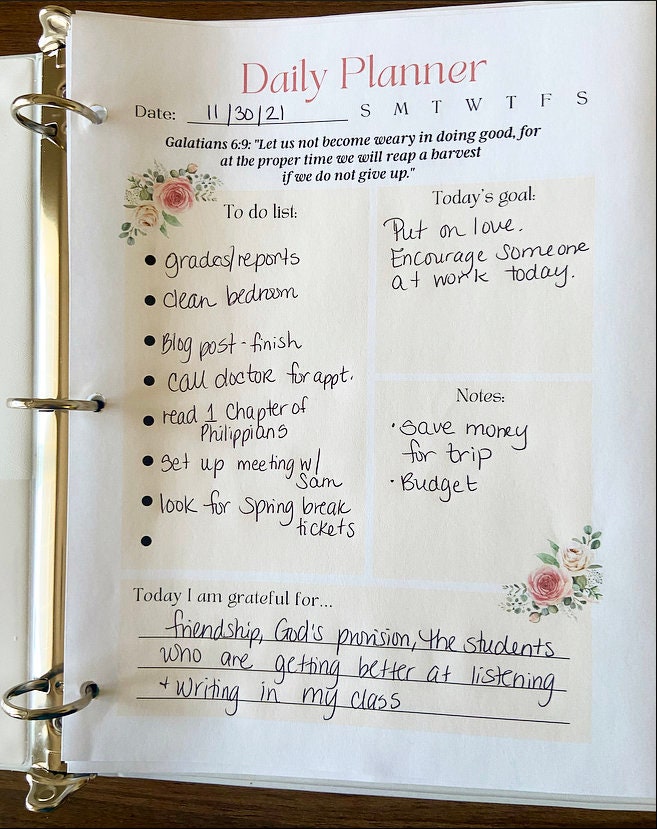 Daily Planner
Date: 11/30/21 S M T W T F S
Galatians 6:9: "Let us not become weary in doing good, for
at the proper time we will reap a harvest
if we do not give up."
To do list:
• grades/reports
• clean bedroom
• Blog post - finish
• call doctor for appt.
• read 1 Chapter of
Philippians
• set up meeting w/
Sam
• look for Spring break
tickets
•
Today's goal:
Put on love.
Encourage someone
at work today.
Notes:
· save money
for trip
· Budget
Today I am grateful for...
friendship, God's provision, the students
who are getting better at listening
+ writing in my class